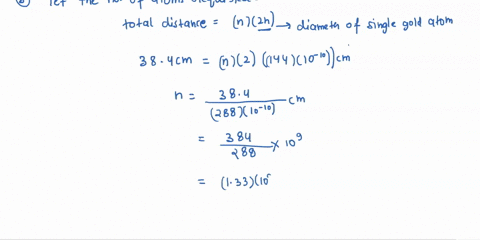 let the no. of atoms
total distance = (n)(2r) → diameth of single gold atom
38.4cm = (n)(2)((144)(10⁻¹⁰))cm
n = 38.4 / (288)(10⁻¹⁰) cm
= 384 / 288 × 10⁹
= (1.33)(10